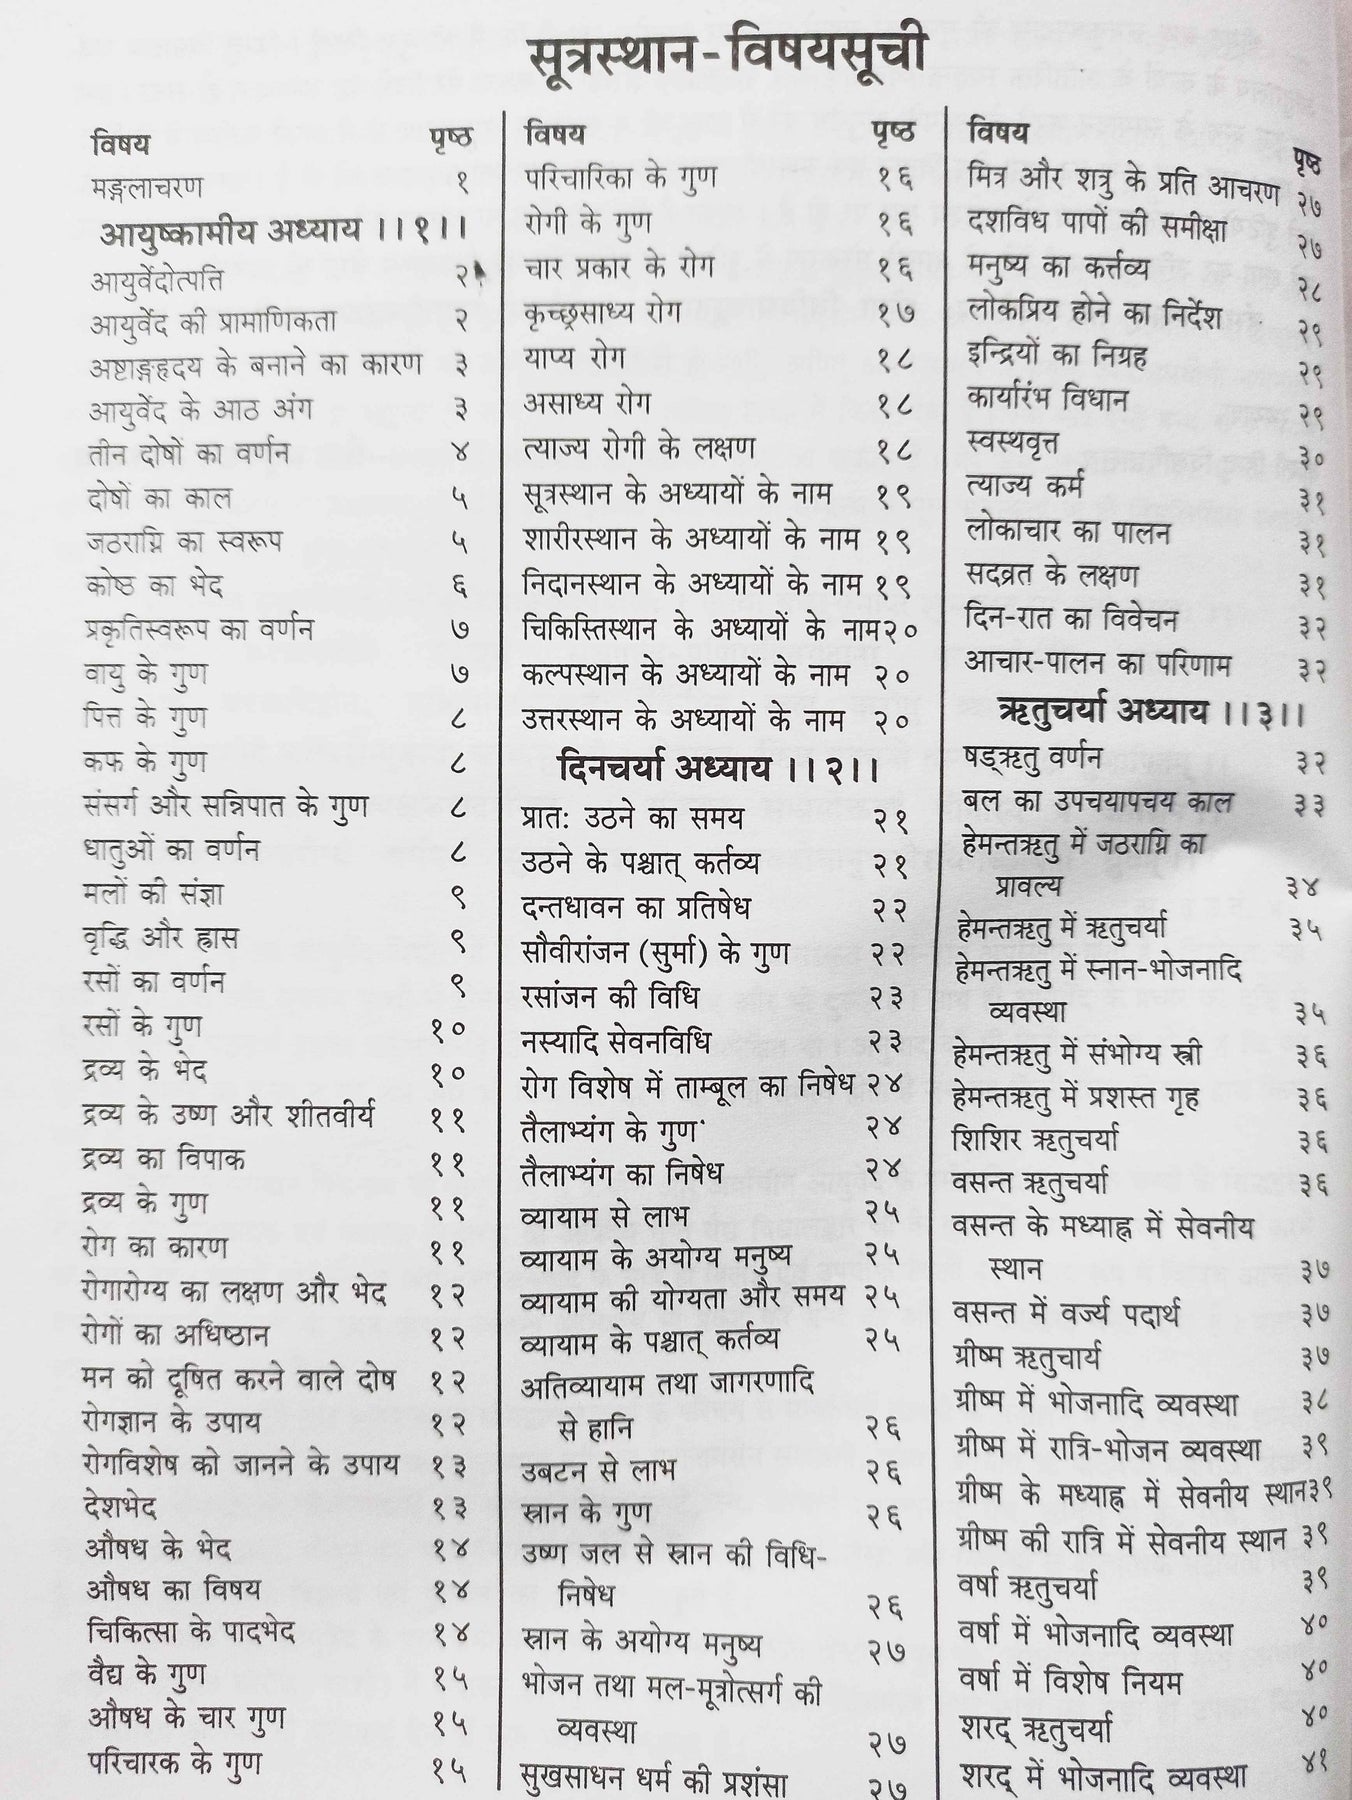 सूत्रस्थान-विषयसूची
विषय पृष्ठ
मङ्गलाचरण १
आयुष्कामीय अध्याय ।।१।।
आयुर्वेदोत्पत्ति २
आयुर्वेद की प्रामाणिकता २
अष्टाङ्गहृदय के बनाने का कारण ३
आयुर्वेद के आठ अंग ३
तीन दोषों का वर्णन ४
दोषों का काल ५
जठराग्नि का स्वरूप ५
कोष्ठ का भेद ६
प्रकृतिस्वरूप का वर्णन ७
वायु के गुण ७
पित्त के गुण ८
कफ के गुण ८
संसर्ग और सन्निपात के गुण ८
धातुओं का वर्णन ८
मलों की संज्ञा ९
वृद्धि और ह्रास ९
रसों का वर्णन ९
रसों के गुण १०
द्रव्य के भेद १०
द्रव्य के उष्ण और शीतवीर्य ११
द्रव्य का विपाक ११
द्रव्य के गुण ११
रोग का कारण ११
रोगारोग्य का लक्षण और भेद १२
रोगों का अधिष्ठान १२
मन को दूषित करने वाले दोष १२
रोगज्ञान के उपाय १२
रोगविशेष को जानने के उपाय १३
देशभेद १३
औषध के भेद १४
औषध का विषय १४
चिकित्सा के पादभेद १४
वैद्य के गुण १५
औषध के चार गुण १५
परिचारक के गुण १५
विषय पृष्ठ
परिचारिका के गुण १६
रोगी के गुण १६
चार प्रकार के रोग १६
कृच्छ्रसाध्य रोग १७
याप्य रोग १८
असाध्य रोग १८
त्याज्य रोगी के लक्षण १८
सूत्रस्थान के अध्यायों के नाम १९
शारीरस्थान के अध्यायों के नाम १९
निदानस्थान के अध्यायों के नाम १९
चिकिस्तिस्थान के अध्यायों के नाम२०
कल्पस्थान के अध्यायों के नाम २०
उत्तरस्थान के अध्यायों के नाम २०
दिनचर्या अध्याय ।।२।।
प्रातः उठने का समय २१
उठने के पश्चात् कर्तव्य २१
दन्तधावन का प्रतिषेध २२
सौवीरांजन (सुर्मा) के गुण २२
रसांजन की विधि २३
नस्यादि सेवनविधि २३
रोग विशेष में ताम्बूल का निषेध २४
तैलाभ्यंग के गुण २४
तैलाभ्यंग का निषेध २४
व्यायाम से लाभ २५
व्यायाम के अयोग्य मनुष्य २५
व्यायाम की योग्यता और समय २५
व्यायाम के पश्चात् कर्तव्य २५
अतिव्यायाम तथा जागरणादि
से हानि २६
उबटन से लाभ २६
स्नान के गुण २६
उष्ण जल से स्नान की विधि-
निषेध २६
स्नान के अयोग्य मनुष्य २७
भोजन तथा मल-मूत्रोत्सर्ग की
व्यवस्था २७
सुखसाधन धर्म की प्रशंसा २७
विषय पृष्ठ
मित्र और शत्रु के प्रति आचरण २७
दशविध पापों की समीक्षा २७
मनुष्य का कर्त्तव्य २८
लोकप्रिय होने का निर्देश २९
इन्द्रियों का निग्रह २९
कार्यारंभ विधान २९
स्वस्थवृत्त ३०
त्याज्य कर्म ३१
लोकाचार का पालन ३१
सदव्रत के लक्षण ३१
दिन-रात का विवेचन ३२
आचार-पालन का परिणाम ३२
ऋतुचर्या अध्याय ।।३।।
षड्ऋतु वर्णन ३२
बल का उपचयापचय काल ३३
हेमन्तऋतु में जठराग्नि का
प्रावल्य ३४
हेमन्तऋतु में ऋतुचर्या ३५
हेमन्तऋतु में स्नान-भोजनादि
व्यवस्था ३५
हेमन्तऋतु में संभोग्य स्त्री ३६
हेमन्तऋतु में प्रशस्त गृह ३६
शिशिर ऋतुचर्या ३६
वसन्त ऋतुचर्या ३६
वसन्त के मध्याह्न में सेवनीय
स्थान ३७
वसन्त में वर्ज्य पदार्थ ३७
ग्रीष्म ऋतुचार्य ३७
ग्रीष्म में भोजनादि व्यवस्था ३८
ग्रीष्म में रात्रि-भोजन व्यवस्था ३९
ग्रीष्म के मध्याह्न में सेवनीय स्थान३९
ग्रीष्म की रात्रि में सेवनीय स्थान ३९
वर्षा ऋतुचर्या ३९
वर्षा में भोजनादि व्यवस्था ४०
वर्षा में विशेष नियम ४०
शरद् ऋतुचर्या ४०
शरद् में भोजनादि व्यवस्था ४१